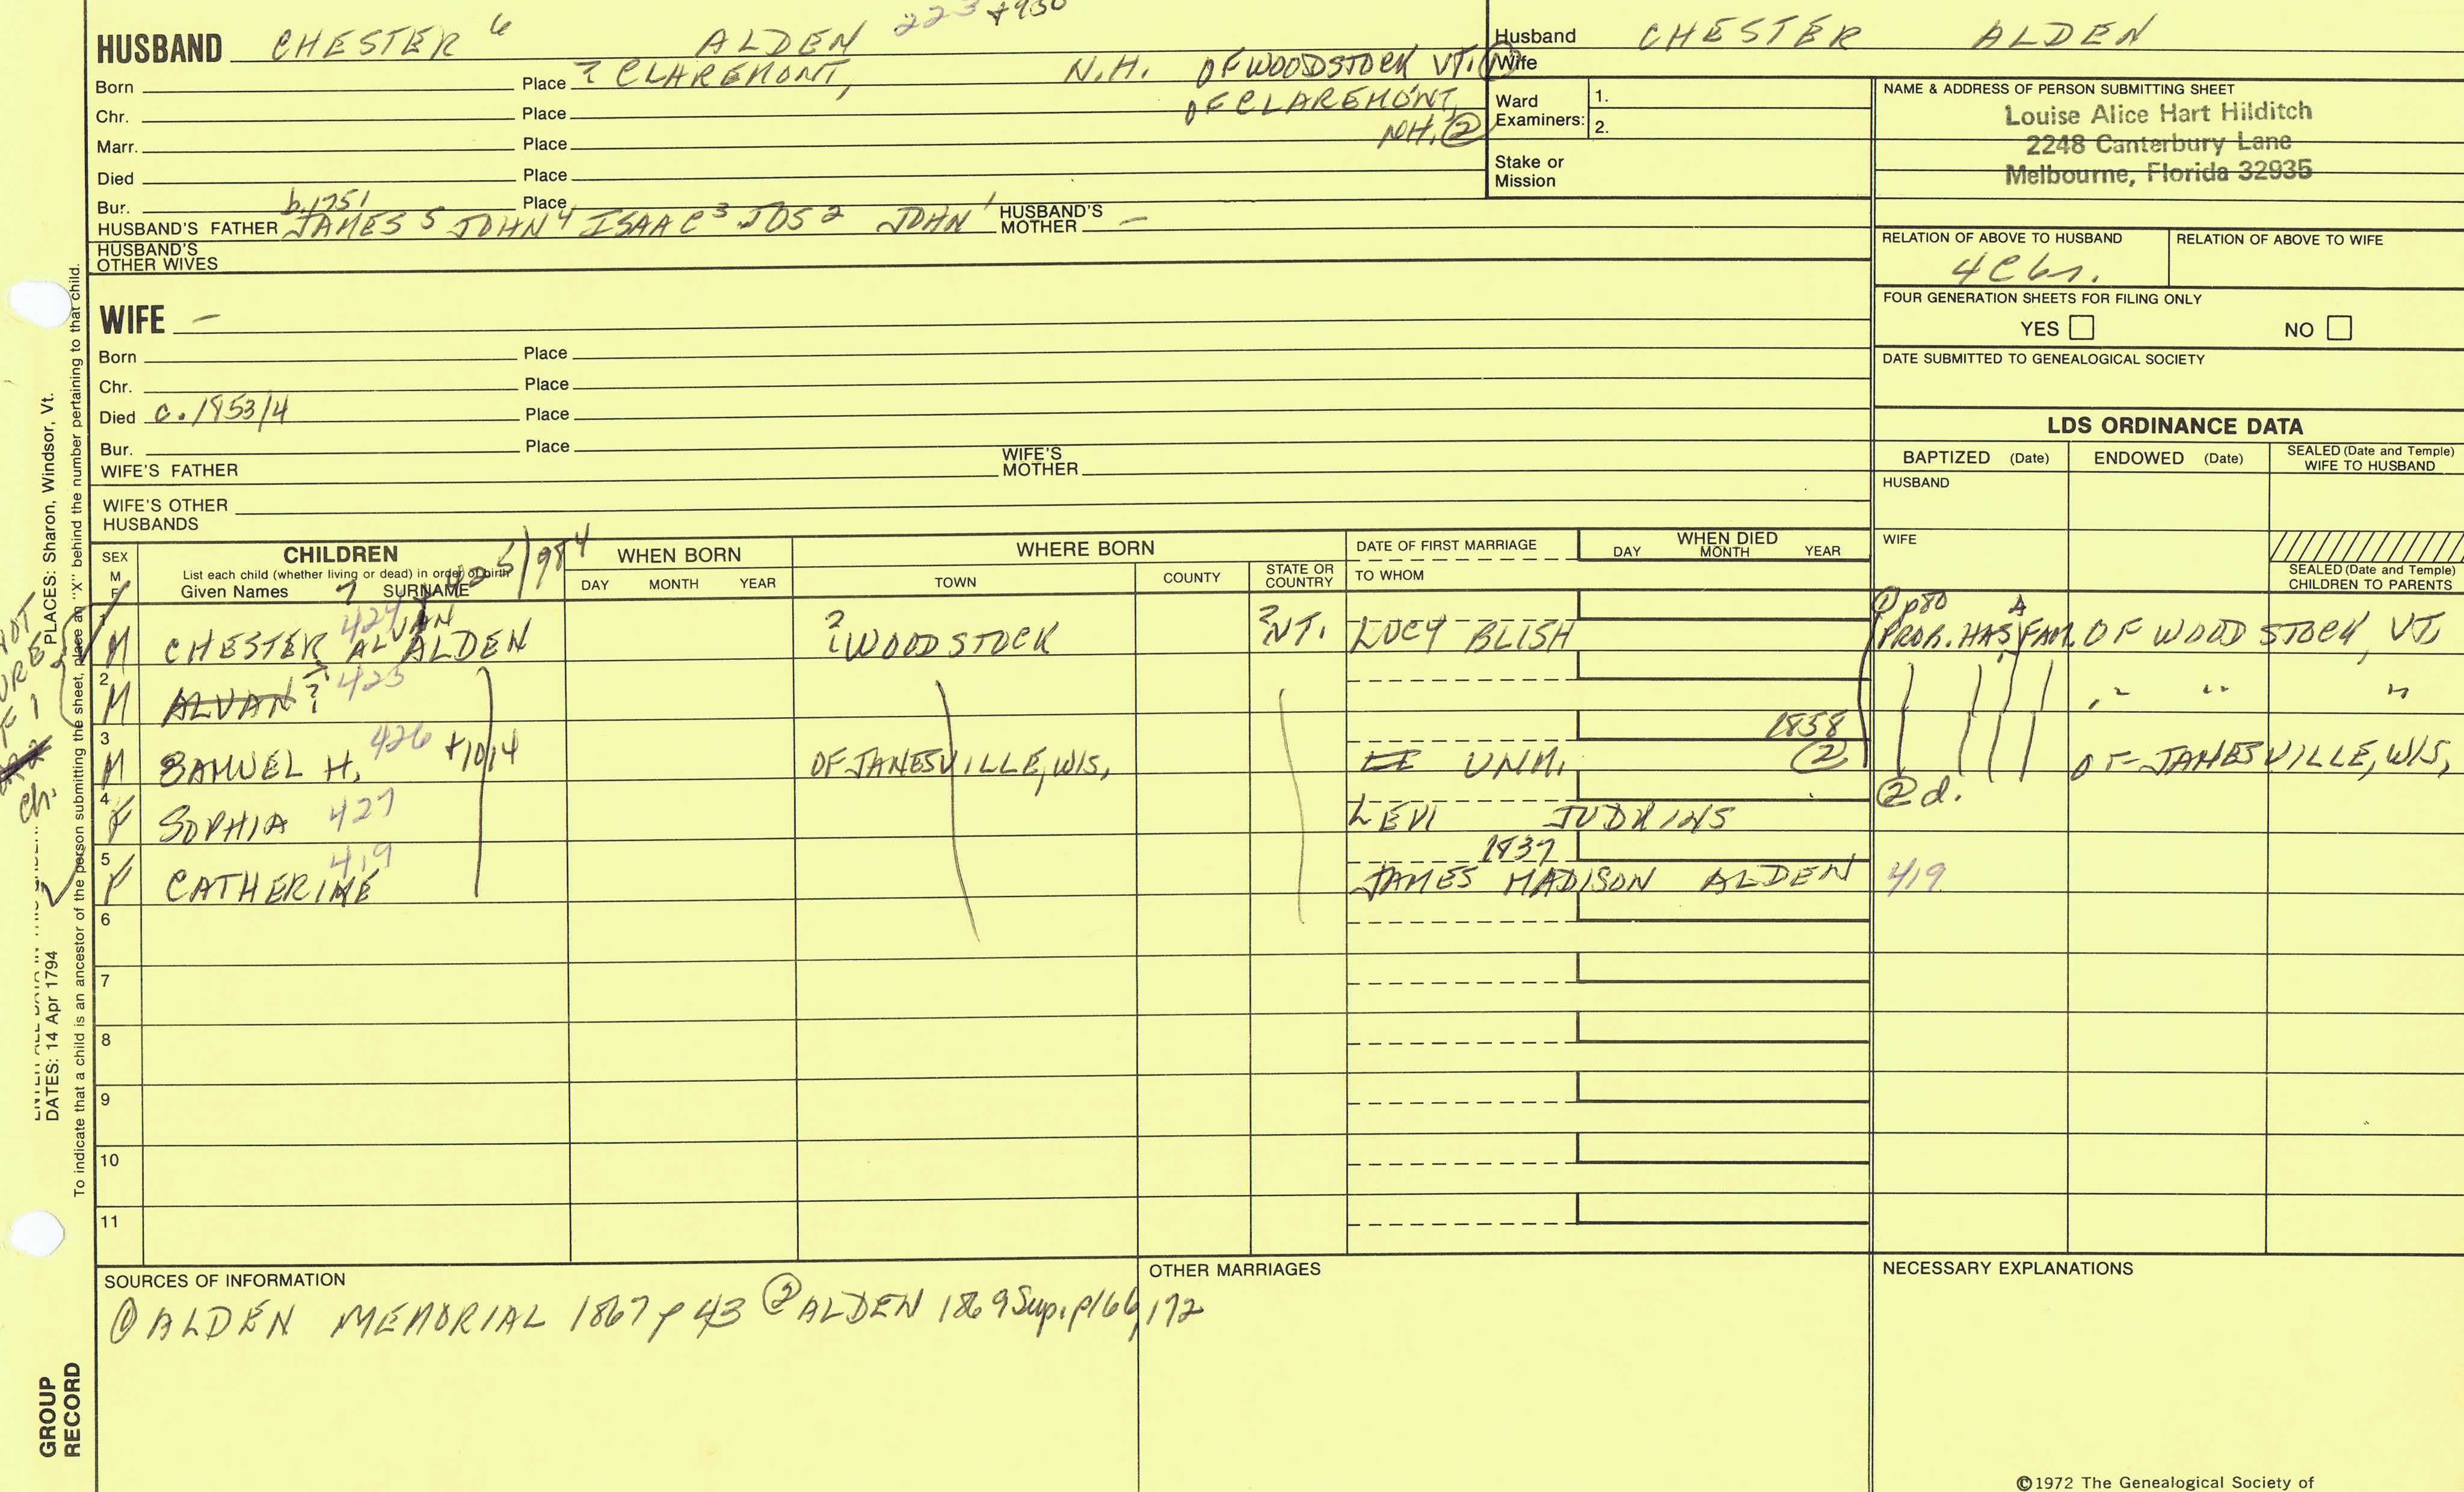 HUSBAND CHESTER 6 ALDEN 223 +930
Born Place ? CLAREMONT, N.H. OF WOODSTOCK VT. ①
Chr. Place OF CLAREMONT,
Marr. Place NH. ②
Died Place
Bur. Place
b. 1751
HUSBAND'S FATHER JAMES 5 JOHN 4 ISAAC 3 JOS 2 JOHN 1 HUSBAND'S MOTHER –
HUSBAND'S
OTHER WIVES
Husband CHESTER ALDEN
Wife
Ward
Examiners: 1.
2.
Stake or
Mission
NAME & ADDRESS OF PERSON SUBMITTING SHEET
Louise Alice Hart Hilditch
2248 Canterbury Lane
Melbourne, Florida 32935
RELATION OF ABOVE TO HUSBAND RELATION OF ABOVE TO WIFE
4C6r.
FOUR GENERATION SHEETS FOR FILING ONLY
YES NO
DATE SUBMITTED TO GENEALOGICAL SOCIETY
WIFE –
Born Place
Chr. Place
Died c. 1853/4 Place
Bur. Place
WIFE'S FATHER WIFE'S MOTHER
WIFE'S OTHER
HUSBANDS
LDS ORDINANCE DATA
BAPTIZED (Date) ENDOWED (Date) SEALED (Date and Temple)
WIFE TO HUSBAND
HUSBAND
WIFE
SEALED (Date and Temple)
CHILDREN TO PARENTS
SEX
M
F
CHILDREN
List each child (whether living or dead) in order of birth
Given Names 7 SURNAME
WHEN BORN
DAY MONTH YEAR
WHERE BORN
TOWN COUNTY STATE OR
COUNTRY
DATE OF FIRST MARRIAGE
TO WHOM
WHEN DIED
DAY MONTH YEAR
1 M CHESTER ALVAN ALDEN 424 ? WOODSTOCK ? VT. LUCY BLISH
① p80
PROB. HAS FAM. OF WOODSTOCK, VT.
2 M ALVAN ? 425 " " "
3 M SAMUEL H. 426 +1014 OF JANESVILLE, WIS. UNM. 1858 ② OF JANESVILLE, WIS,
② d.
4 F SOPHIA 427 LEVI JUDKINS
5 F CATHERINE 419 1837 JAMES MADISON ALDEN 419
6
7
8
9
10
11
SOURCES OF INFORMATION
① ALDEN MEMORIAL 1867 p 43 ② ALDEN 1869 Sup. p166, 172
OTHER MARRIAGES
NECESSARY EXPLANATIONS
©1972 The Genealogical Society of
PLACES: Sharon, Windsor, Vt.
DATES: 14 Apr 1794
To indicate that a child is an ancestor of the person submitting the sheet, place an "X" behind the number pertaining to that child.
GROUP
RECORD